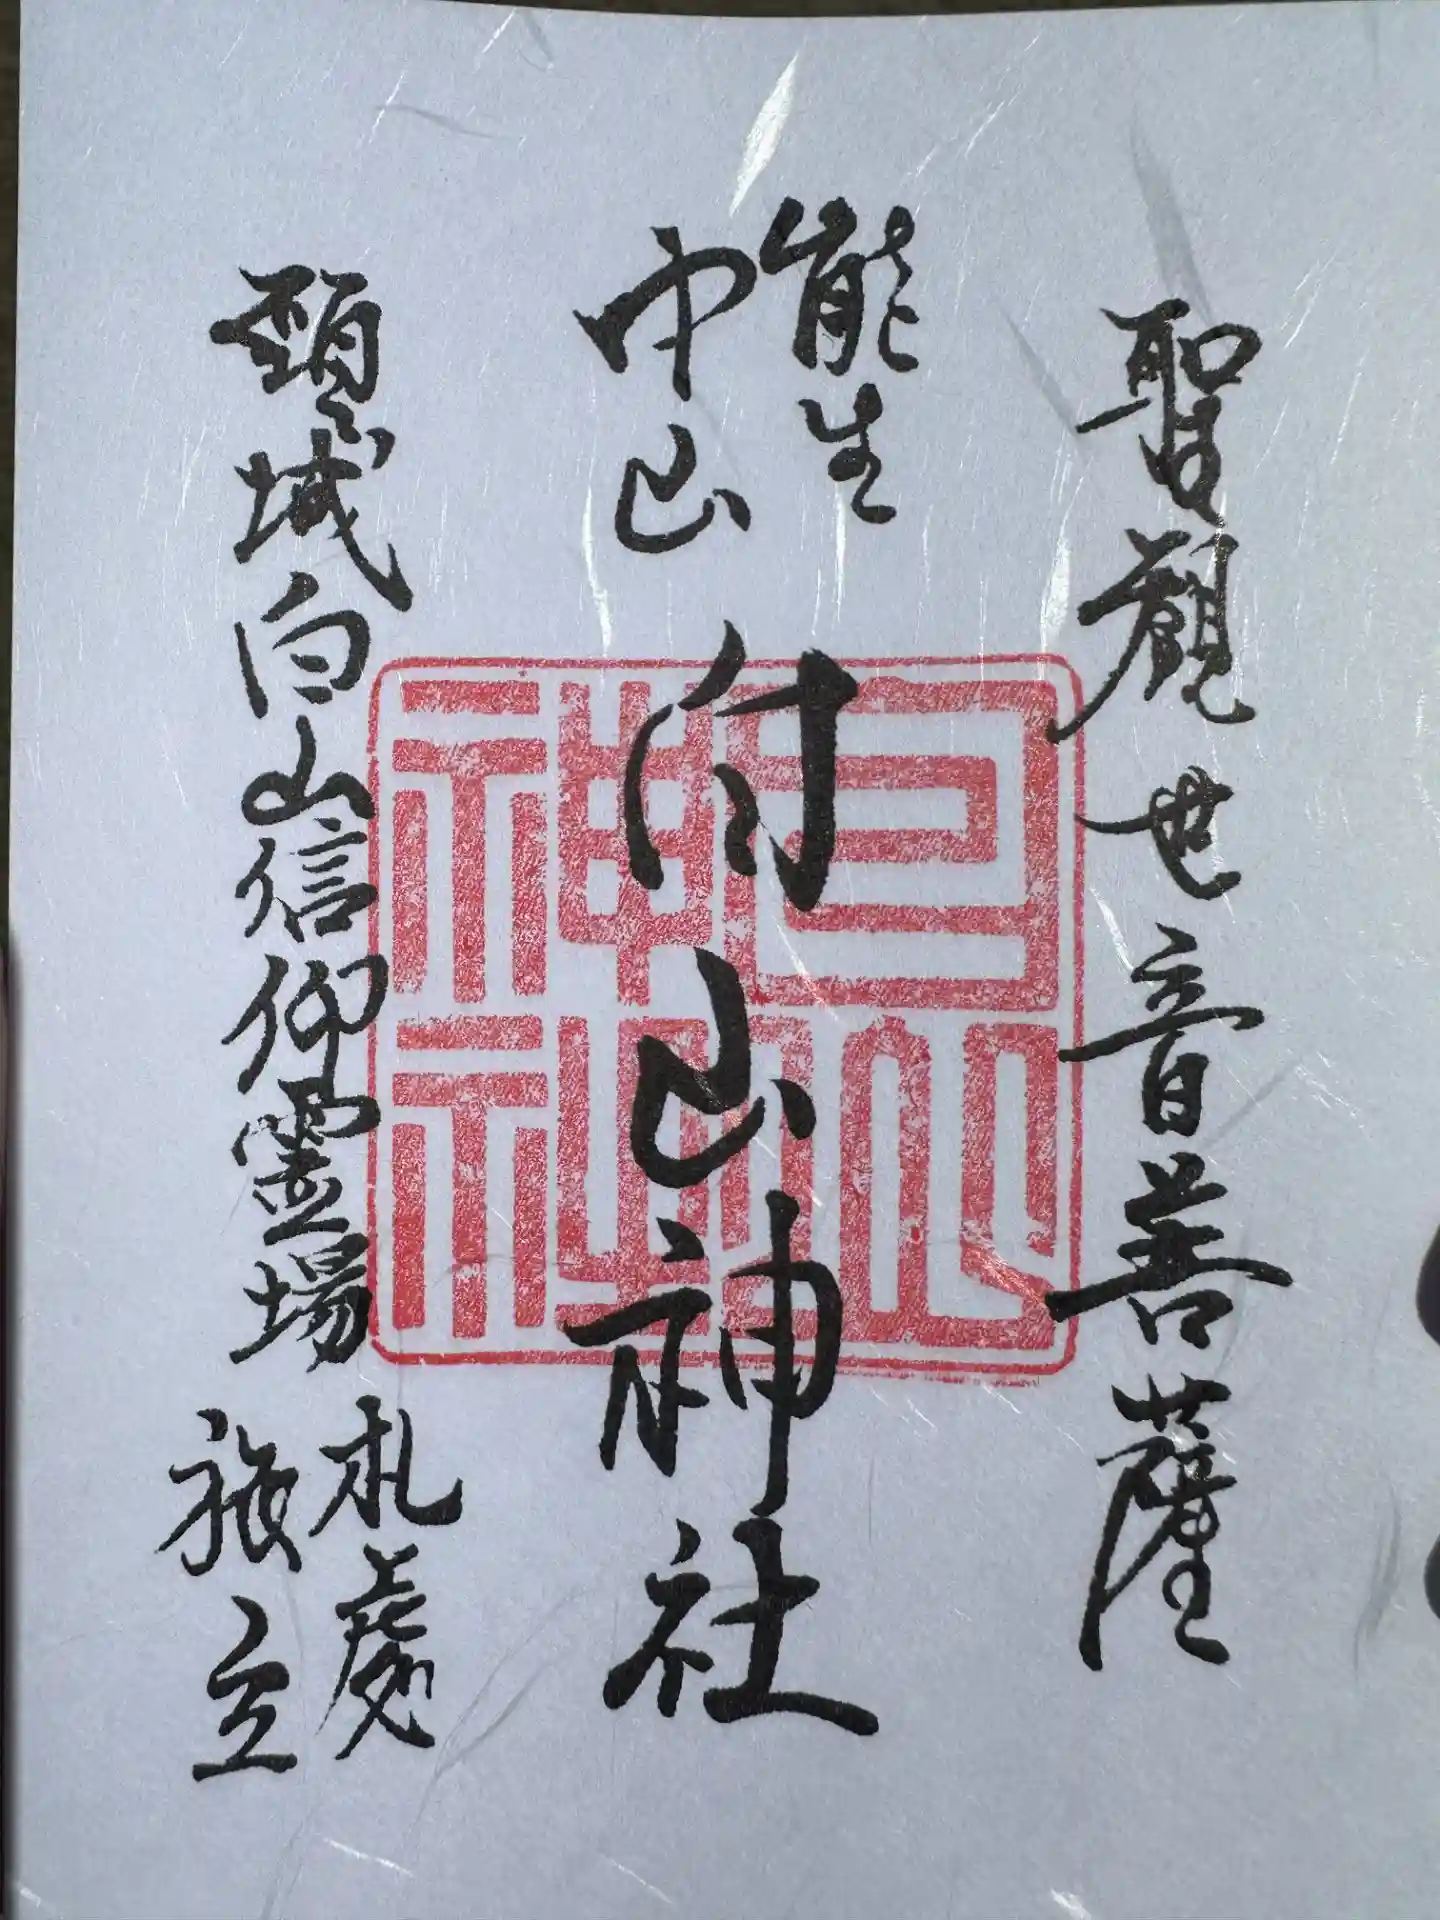 聖觀世音菩薩
能生
中山
白山神社
頸城白山信仰霊場
札處
旅立
白山
神社